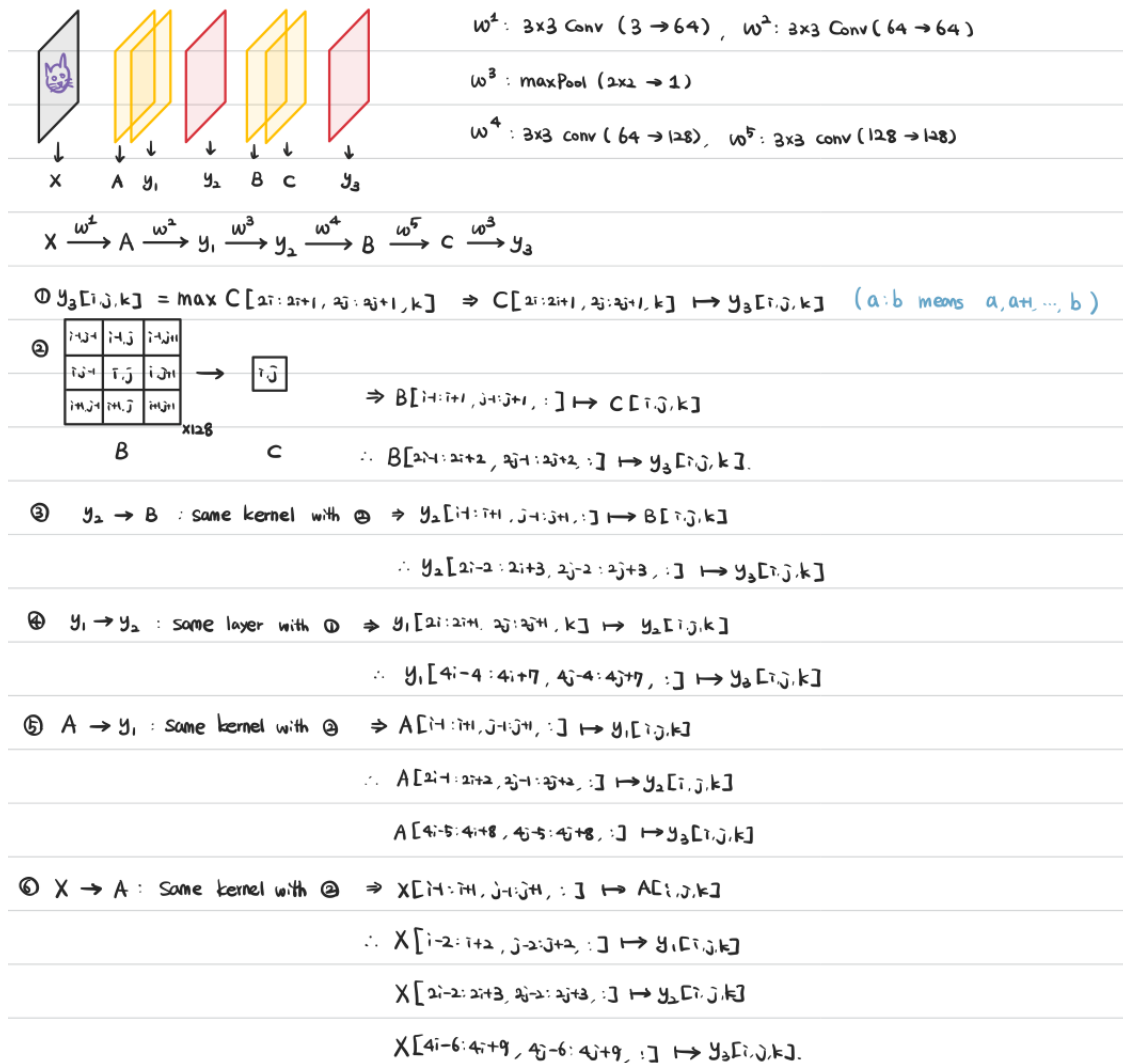 w¹ : 3x3 Conv (3 → 64) , w² : 3x3 Conv ( 64 → 64 )
w³ : maxPool (2x2 → 1)
w⁴ : 3x3 conv ( 64 → 128), w⁵ : 3x3 conv (128 → 128)
X A y₁ y₂ B C y₃
X —w¹→ A —w²→ y₁ —w³→ y₂ —w⁴→ B —w⁵→ C —w³→ y₃
① y₃[i,j,k] = max C[2i:2i+1, 2j:2j+1, k] ⇒ C[2i:2i+1, 2j:2j+1, k] ↦ y₃[i,j,k] (a:b means a, a+1, ..., b)
②
i-1,j-1 i-1,j i-1,j+1
i,j-1 i,j i,j+1 → i,j
i+1,j-1 i+1,j i+1,j+1
x128
⇒ B[i-1:i+1, j-1:j+1, :] ↦ C[i,j,k]
B C
∴ B[2i-1:2i+2, 2j-1:2j+2, :] ↦ y₃[i,j,k].
③ y₂ → B : same kernel with ② ⇒ y₂[i-1:i+1, j-1:j+1, :] ↦ B[i,j,k]
∴ y₂[2i-2:2i+3, 2j-2:2j+3, :] ↦ y₃[i,j,k]
④ y₁ → y₂ : same layer with ① ⇒ y₁[2i:2i+1, 2j:2j+1, k] ↦ y₂[i,j,k]
∴ y₁[4i-4:4i+7, 4j-4:4j+7, :] ↦ y₃[i,j,k]
⑤ A → y₁ : same kernel with ② ⇒ A[i-1:i+1, j-1:j+1, :] ↦ y₁[i,j,k]
∴ A[2i-1:2i+2, 2j-1:2j+2, :] ↦ y₂[i,j,k]
A[4i-5:4i+8, 4j-5:4j+8, :] ↦ y₃[i,j,k]
⑥ X → A : Same kernel with ② ⇒ X[i-1:i+1, j-1:j+1, :] ↦ A[i,j,k]
∴ X[i-2:i+2, j-2:j+2, :] ↦ y₁[i,j,k]
X[2i-2:2i+3, 2j-2:2j+3, :] ↦ y₂[i,j,k]
X[4i-6:4i+9, 4j-6:4j+9, :] ↦ y₃[i,j,k].